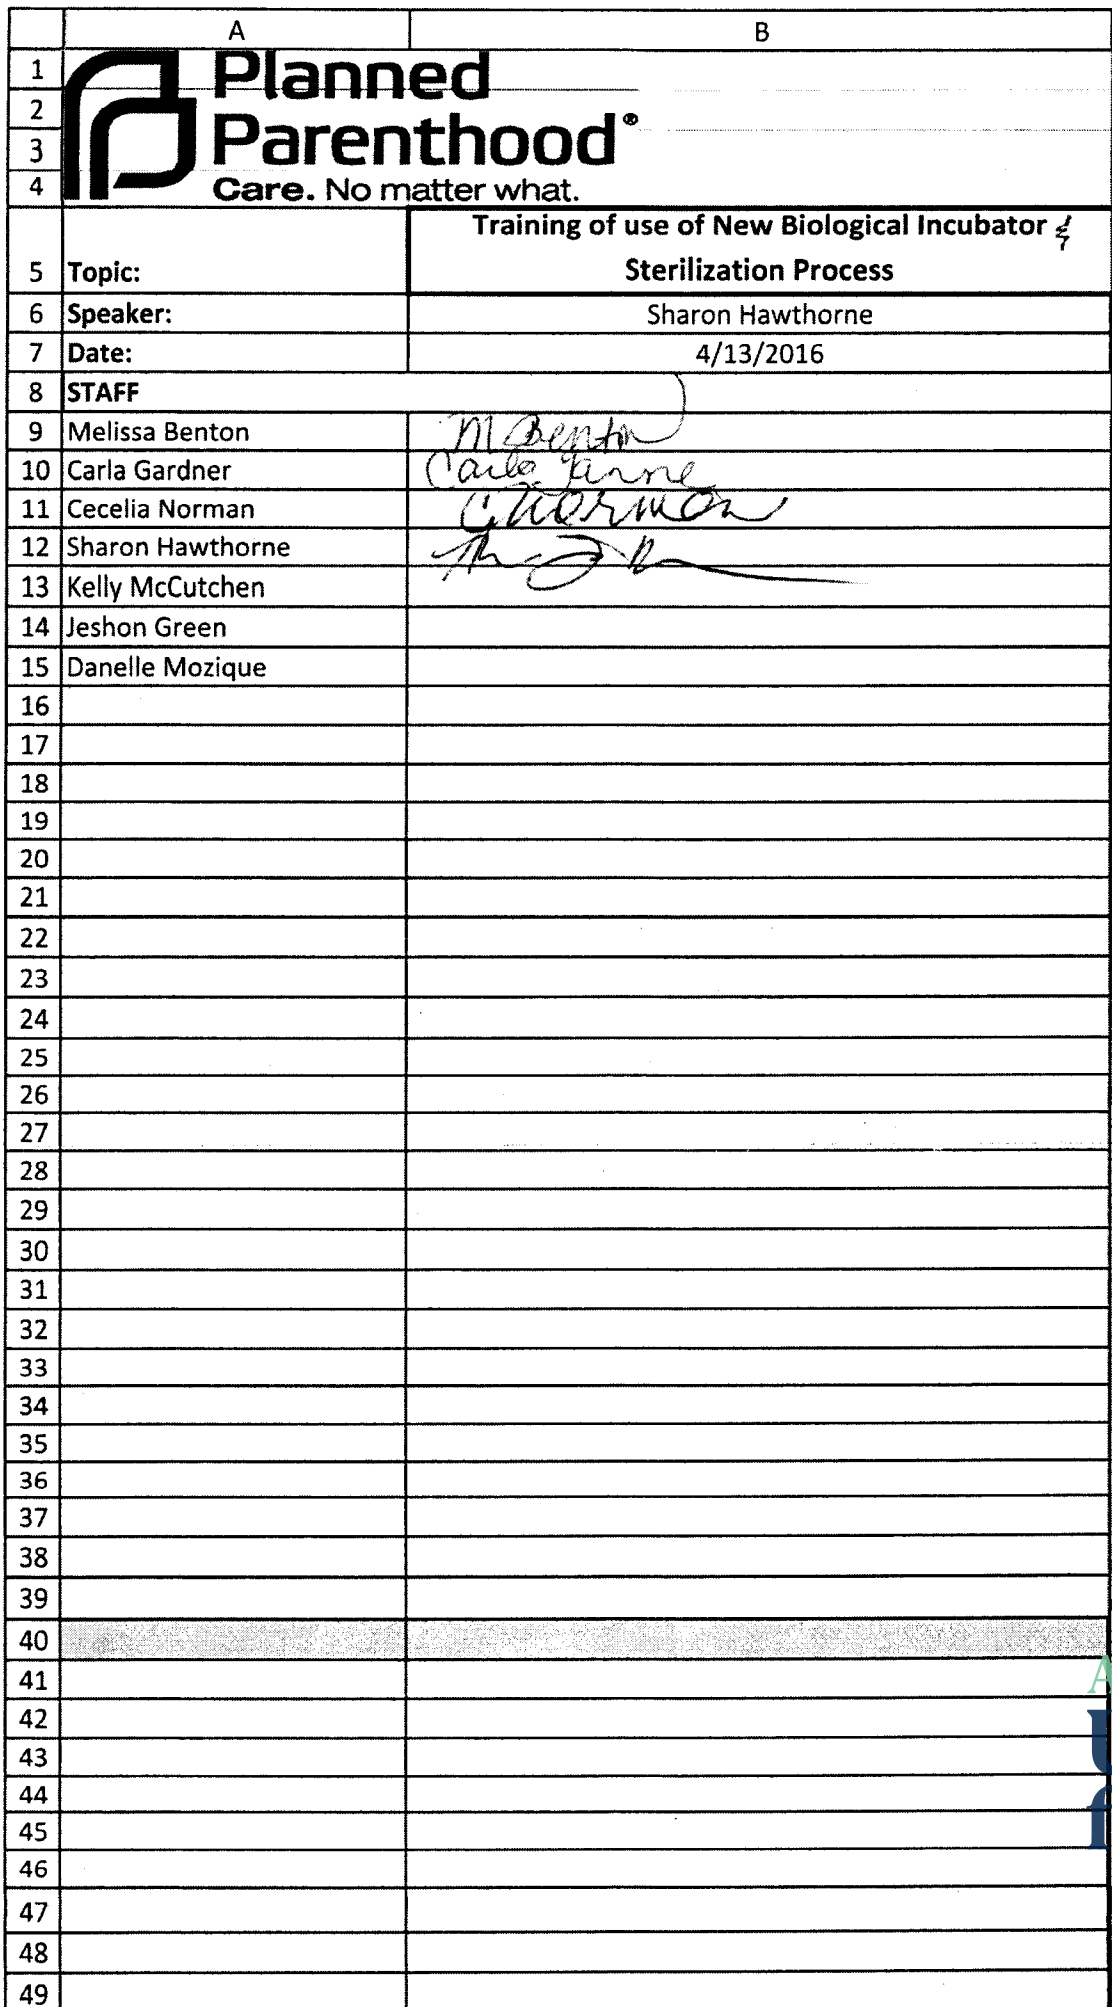 A B
1 Planned
2
3 Parenthood®
4 Care. No matter what.
5 Topic: Training of use of New Biological Incubator &
Sterilization Process
6 Speaker: Sharon Hawthorne
7 Date: 4/13/2016
8 STAFF
9 Melissa Benton M Benton
10 Carla Gardner Carla
11 Cecelia Norman CNorman
12 Sharon Hawthorne
13 Kelly McCutchen
14 Jeshon Green
15 Danelle Mozique
16
17
18
19
20
21
22
23
24
25
26
27
28
29
30
31
32
33
34
35
36
37
38
39
40
41 A
42
43 U
44
45 f
46
47
48
49